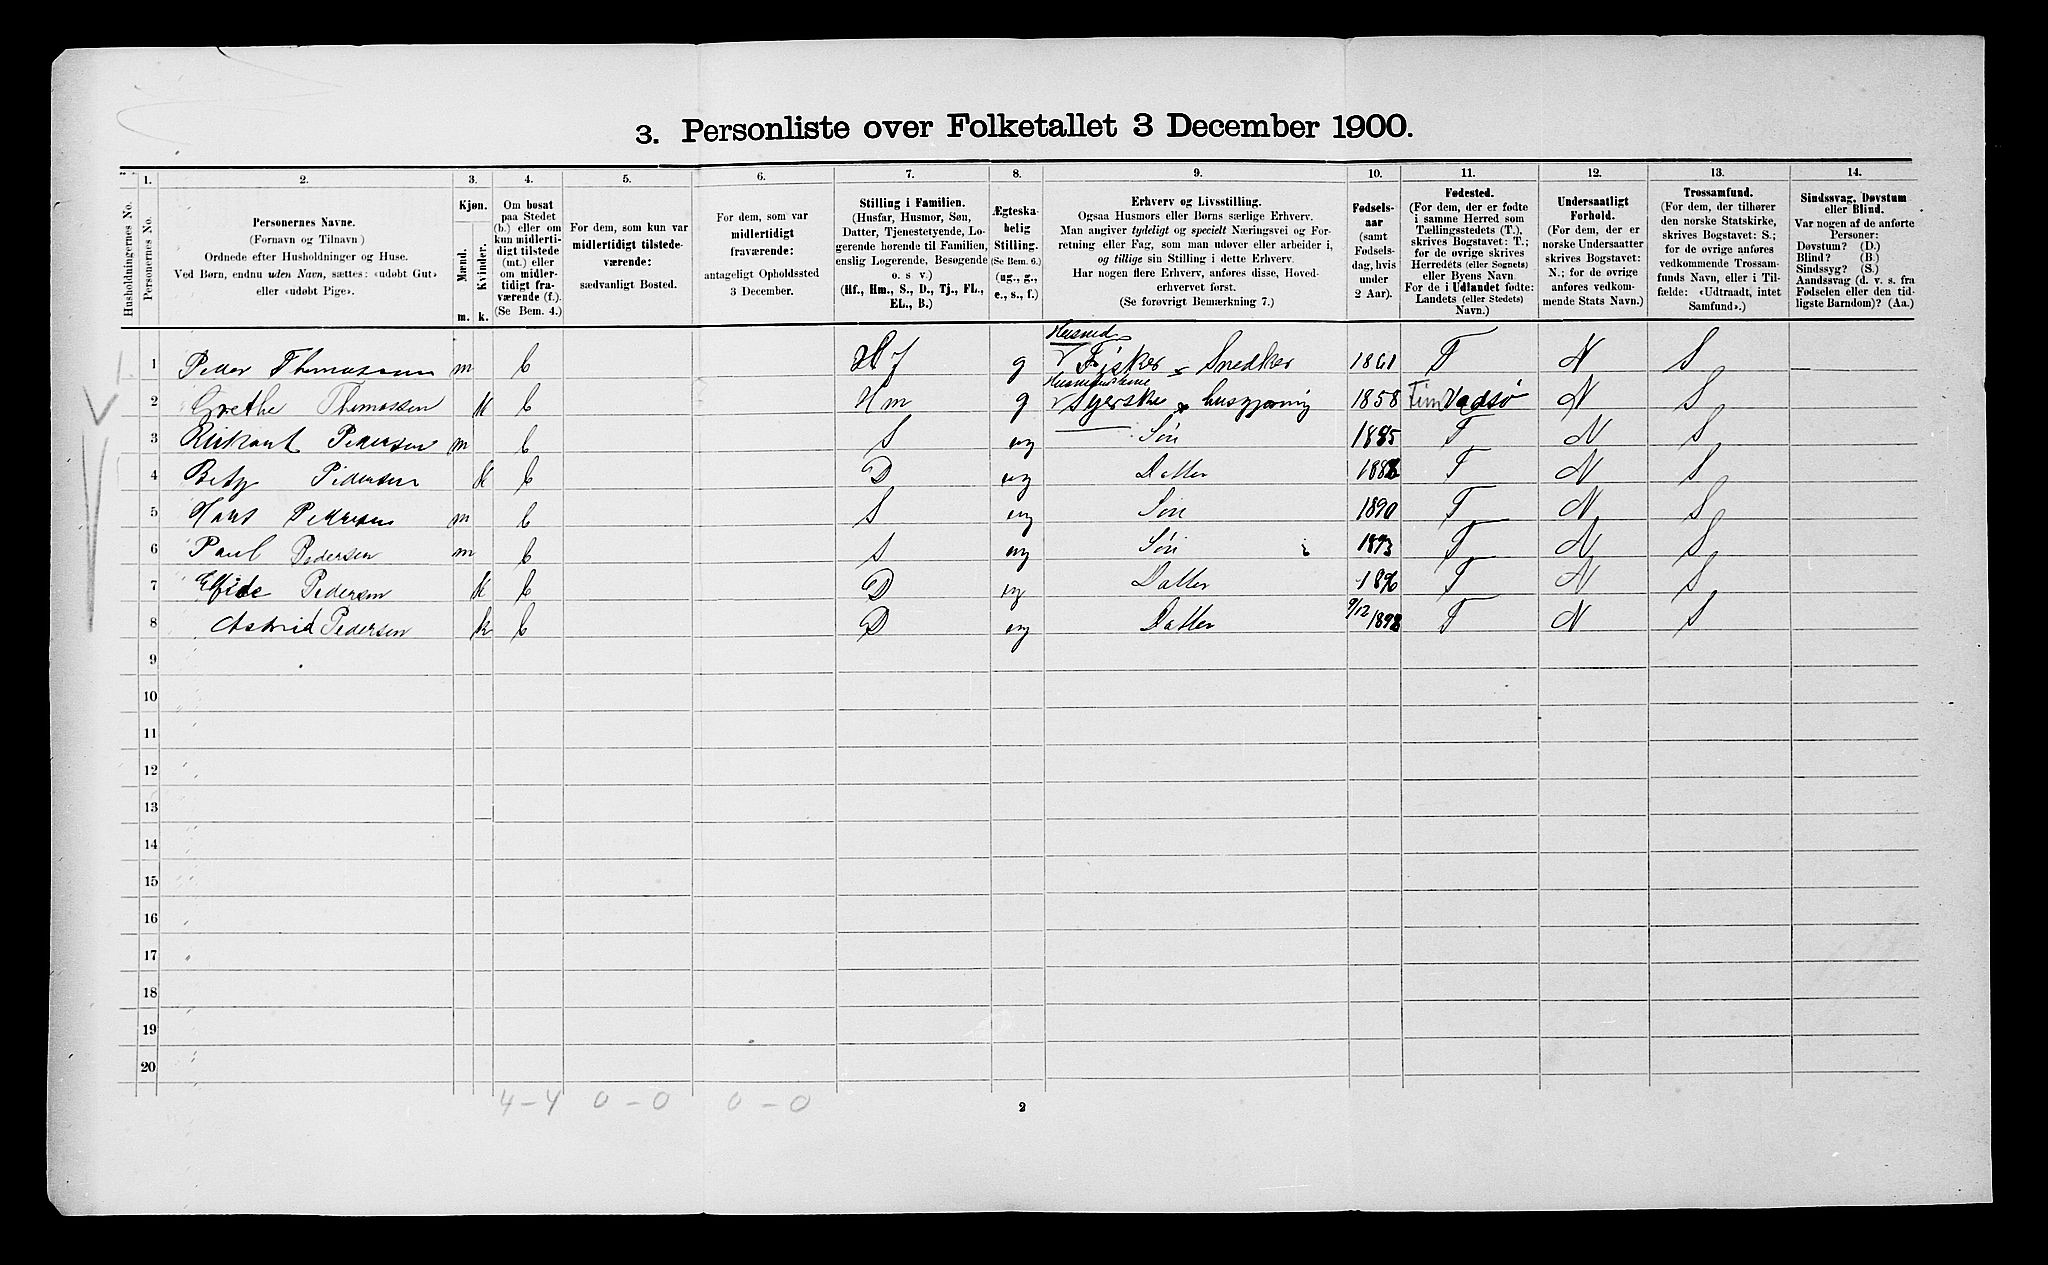 3. Personliste over Folketallet 3 December 1900.
Husholdningernes No.
1. Personernes No.
2. Personernes Navne. (Fornavn og Tilnavn) Ordnede efter Husholdninger og Huse. Ved Børn, endnu uden Navn, sættes: «udøbt Gut» eller «udøbt Pige».
3. Kjøn. Mænd. Kvinder. m. k.
4. Om bosat paa Stedet (b.) eller om kun midlertidigt tilstede (mt.) eller om midlertidigt fraværende (f.). (Se Bem. 4.)
5. For dem, som kun var midlertidigt tilstedeværende: sædvanligt Bosted.
6. For dem, som var midlertidigt fraværende: antageligt Opholdssted 3 December.
7. Stilling i Familien. (Husfar, Husmor, Søn, Datter, Tjenestetyende, Logerende hørende til Familien, enslig Logerende, Besøgende o. s v.) (Hf., Hm., S., D., Tj., FL., EL., B.)
8. Ægteskabelig Stilling. (Se Bem. 6.) (ug., g., e., s., f.)
9. Erhverv og Livsstilling. Ogsaa Husmors eller Børns særlige Erhverv. Man angiver tydeligt og specielt Næringsvei og Forretning eller Fag, som man udøver eller arbeider i, og tillige sin Stilling i dette Erhverv. Har nogen flere Erhverv, anføres disse, Hoved-erhvervet først. (Se forøvrigt Bemærkning 7.)
10. Fødselsaar (samt Fødselsdag, hvis under 2 Aar).
11. Fødested. (For dem, der er fødte i samme Herred som Tællingsstedets (T.), skrives Bogstavet: T.; for de øvrige skrives Herredets (eller Sognets) eller Byens Navn. For de i Udlandet fødte: Landets (eller Stedets) Navn.)
12. Undersaatligt Forhold. (For dem, der er norske Undersaatter skrives Bogstavet: N.; for de øvrige anføres vedkommende Stats Navn.)
13. Trossamfund. (For dem, der tilhører den norske Statskirke, skrives Bogstavet: S.; for de øvrige anføres vedkommende Trossamfunds Navn, eller i Tilfælde: «Udtraadt, intet Samfund».)
14. Sindssvag, Døvstum eller Blind. Var nogen af de anførte Personer: Døvstum? (D.) Blind? (B.) Sindssyg? (S.) Aandssvag (d. v. s. fra Fødselen eller den tidligste Barndom)? (Aa.)
1 Peder Thomassen m b Hf g Fisker Snedker 1861 T N S
2 Grethe Thomassen k b Hm g Syerske husgjerning 1858 Vadsø N S
3 Pedersen m b S ug Søn 1885 T N S
4 Betzy Pedersen k b D ug Datter 188 T N S
5 Hans Pedersen m b S ug Søn 1890 T N S
6 Paul Pedersen m b S ug Søn 1893 T N S
7 Pedersen k b D ug Datter 1896 T N S
8 Astrid Pedersen k b D ug Datter 9/12 1898 T N S
9
10
11
12
13
14
15
16
17
18
19
20
4 - 4 0 - 0 0 - 0
2